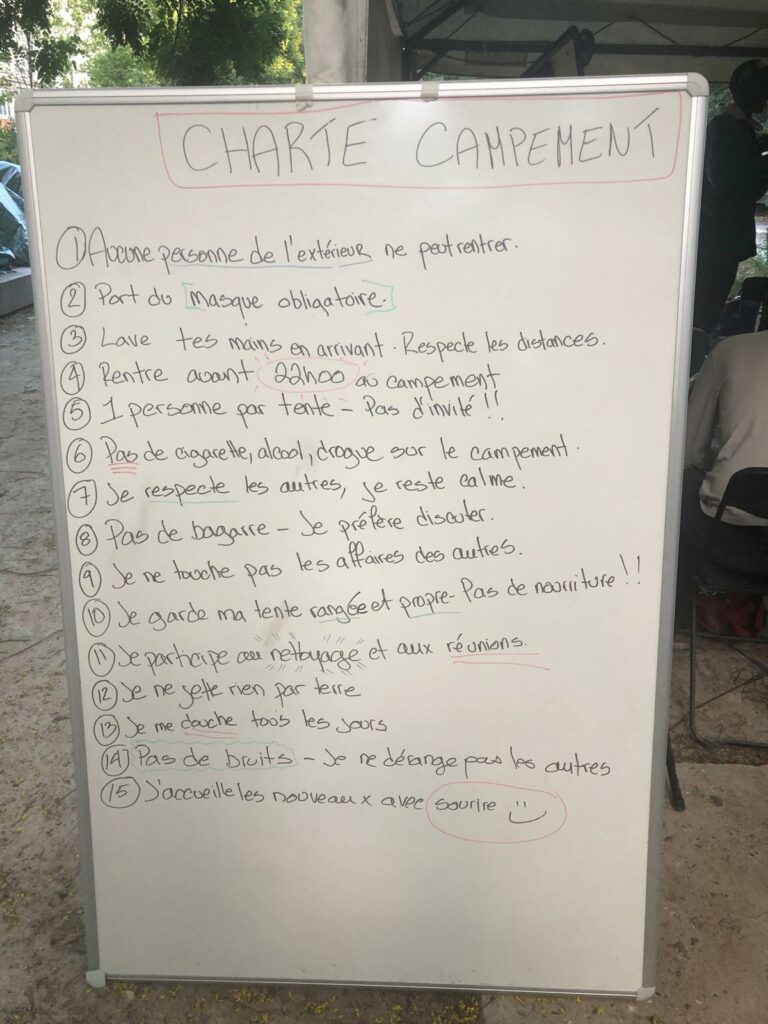 CHARTE CAMPEMENT
① Aucune personne de l'extérieur ne peut rentrer.
② Port du [masque obligatoire.]
③ Lave tes mains en arrivant. Respecte les distances.
④ Rentre avant 22h00 au campement
⑤ 1 personne par tente - Pas d'invité !!
⑥ Pas de cigarette, alcool, drogue sur le campement.
⑦ Je respecte les autres, je reste calme.
⑧ Pas de bagarre - Je préfère discuter.
⑨ Je ne touche pas les affaires des autres.
⑩ Je garde ma tente rangée et propre - Pas de nourriture !!
⑪ Je participe au nettoyage et aux réunions.
⑫ Je ne jette rien par terre
⑬ Je me douche tous les jours
⑭ Pas de bruits - Je ne dérange pas les autres
⑮ J'accueille les nouveaux avec sourire